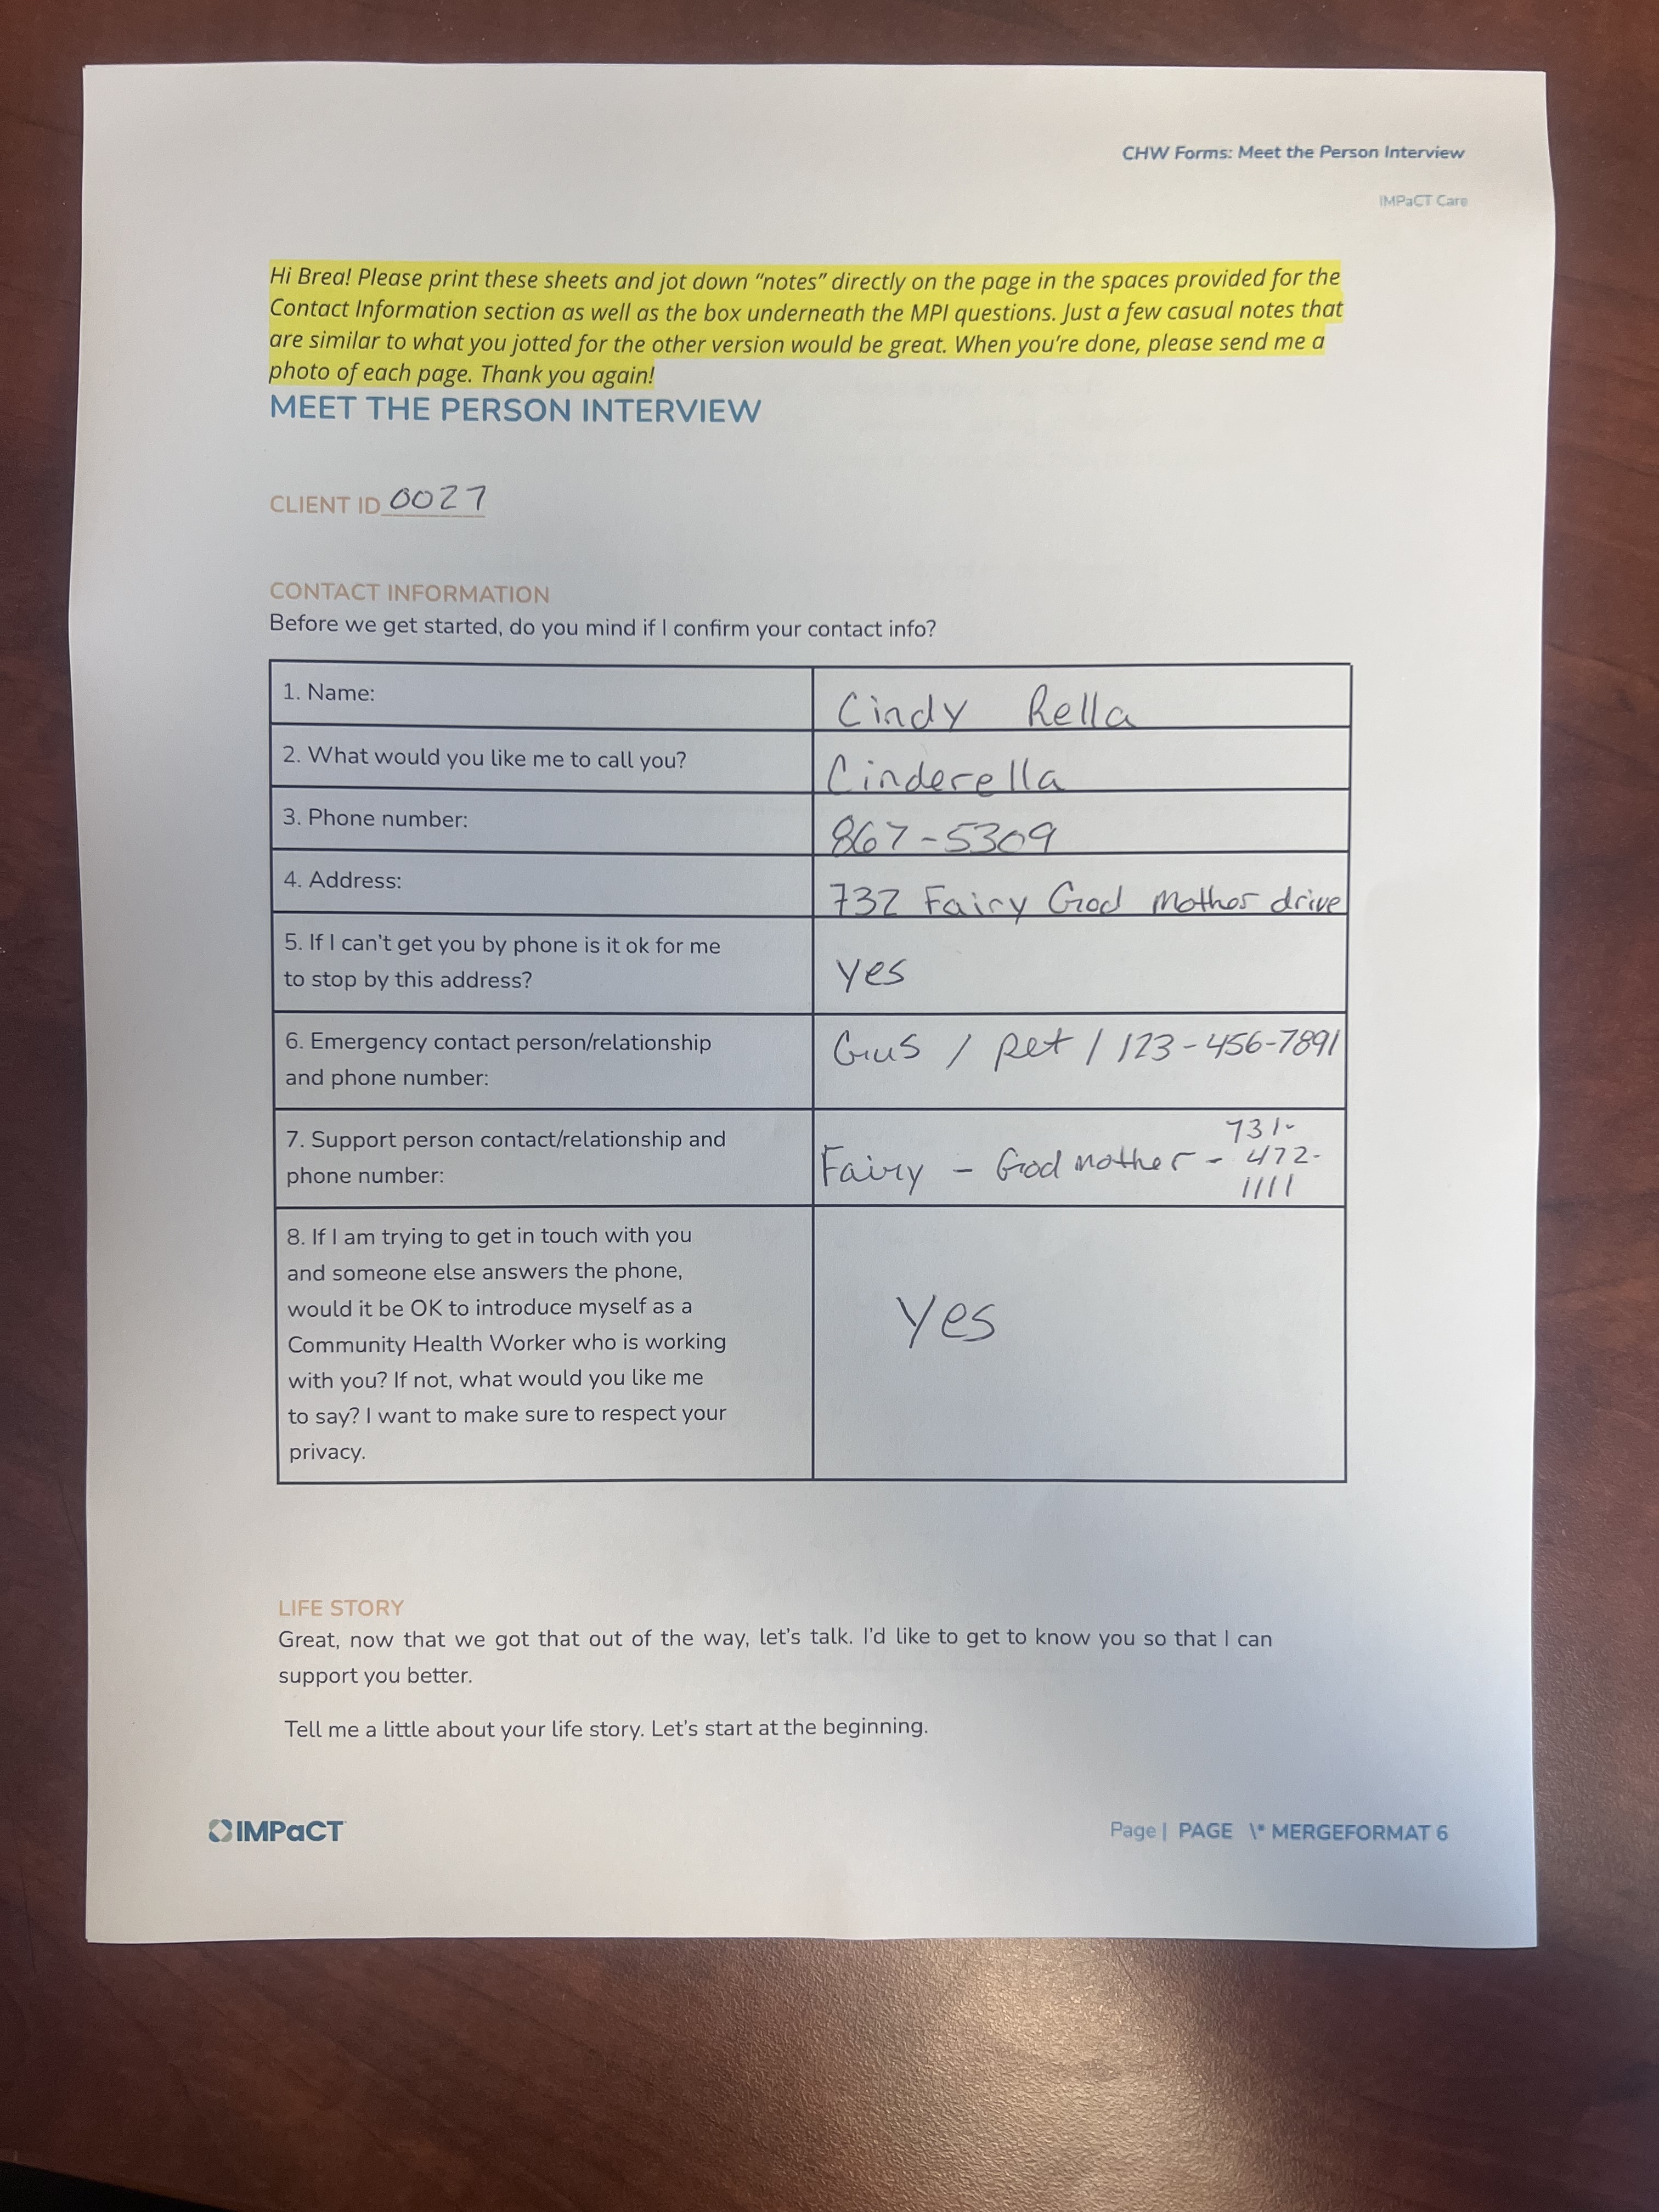 CHW Forms: Meet the Person Interview
IMPaCT Care
Hi Brea! Please print these sheets and jot down “notes” directly on the page in the spaces provided for the
Contact Information section as well as the box underneath the MPI questions. Just a few casual notes that
are similar to what you jotted for the other version would be great. When you’re done, please send me a
photo of each page. Thank you again!
MEET THE PERSON INTERVIEW
CLIENT ID 0027
CONTACT INFORMATION
Before we get started, do you mind if I confirm your contact info?
1. Name:
Cindy Rella
2. What would you like me to call you?
Cinderella
3. Phone number:
867-5309
4. Address:
732 Fairy God Mother drive
5. If I can’t get you by phone is it ok for me
to stop by this address?
yes
6. Emergency contact person/relationship
and phone number:
Gus / pet / 123-456-7891
7. Support person contact/relationship and
phone number:
Fairy - God mother - 731-
472-
1111
8. If I am trying to get in touch with you
and someone else answers the phone,
would it be OK to introduce myself as a
Community Health Worker who is working
with you? If not, what would you like me
to say? I want to make sure to respect your
privacy.
Yes
LIFE STORY
Great, now that we got that out of the way, let’s talk. I’d like to get to know you so that I can
support you better.
Tell me a little about your life story. Let’s start at the beginning.
IMPaCT
Page | PAGE \* MERGEFORMAT 6